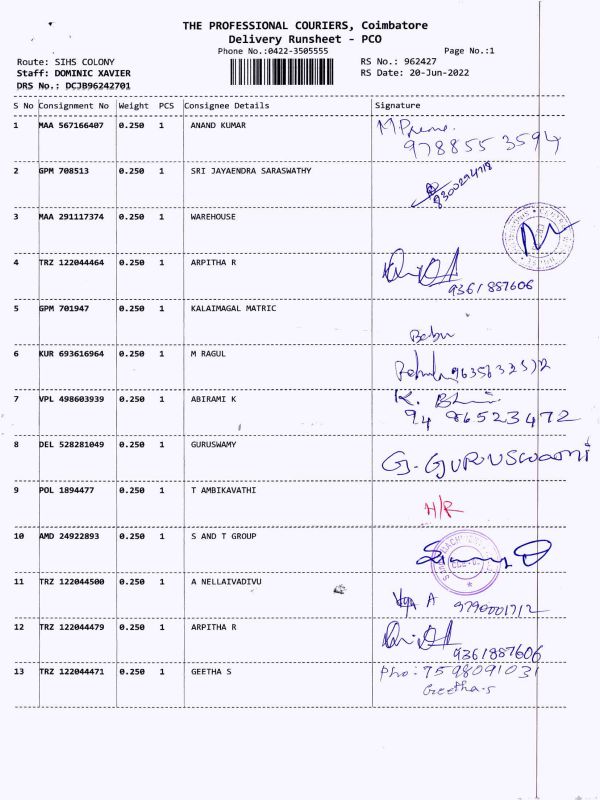 THE PROFESSIONAL COURIERS, Coimbatore
Delivery Runsheet - PCO
Phone No.:0422-3505555
Page No.:1
Route: SIHS COLONY
RS No.: 962427
Staff: DOMINIC XAVIER
RS Date: 20-Jun-2022
DRS No.: DCJB96242701
S No Consignment No Weight PCS Consignee Details Signature
1 MAA 567166407 0.250 1 ANAND KUMAR
978855 3594
2 GPM 708513 0.250 1 SRI JAYAENDRA SARASWATHY
3 MAA 291117374 0.250 1 WAREHOUSE
4 TRZ 122044464 0.250 1 ARPITHA R
9361887606
5 GPM 701947 0.250 1 KALAIMAGAL MATRIC
Babu
6 KUR 693616964 0.250 1 M RAGUL
7 VPL 498603939 0.250 1 ABIRAMI K
94 86523472
8 DEL 528281049 0.250 1 GURUSWAMY
G. GURUSWAMI
9 POL 1894477 0.250 1 T AMBIKAVATHI
H/R
10 AMD 24922893 0.250 1 S AND T GROUP
11 TRZ 122044500 0.250 1 A NELLAIVADIVU
9790001712
12 TRZ 122044479 0.250 1 ARPITHA R
9361887606
13 TRZ 122044471 0.250 1 GEETHA S
Pho: 7598091031
Geetha.s